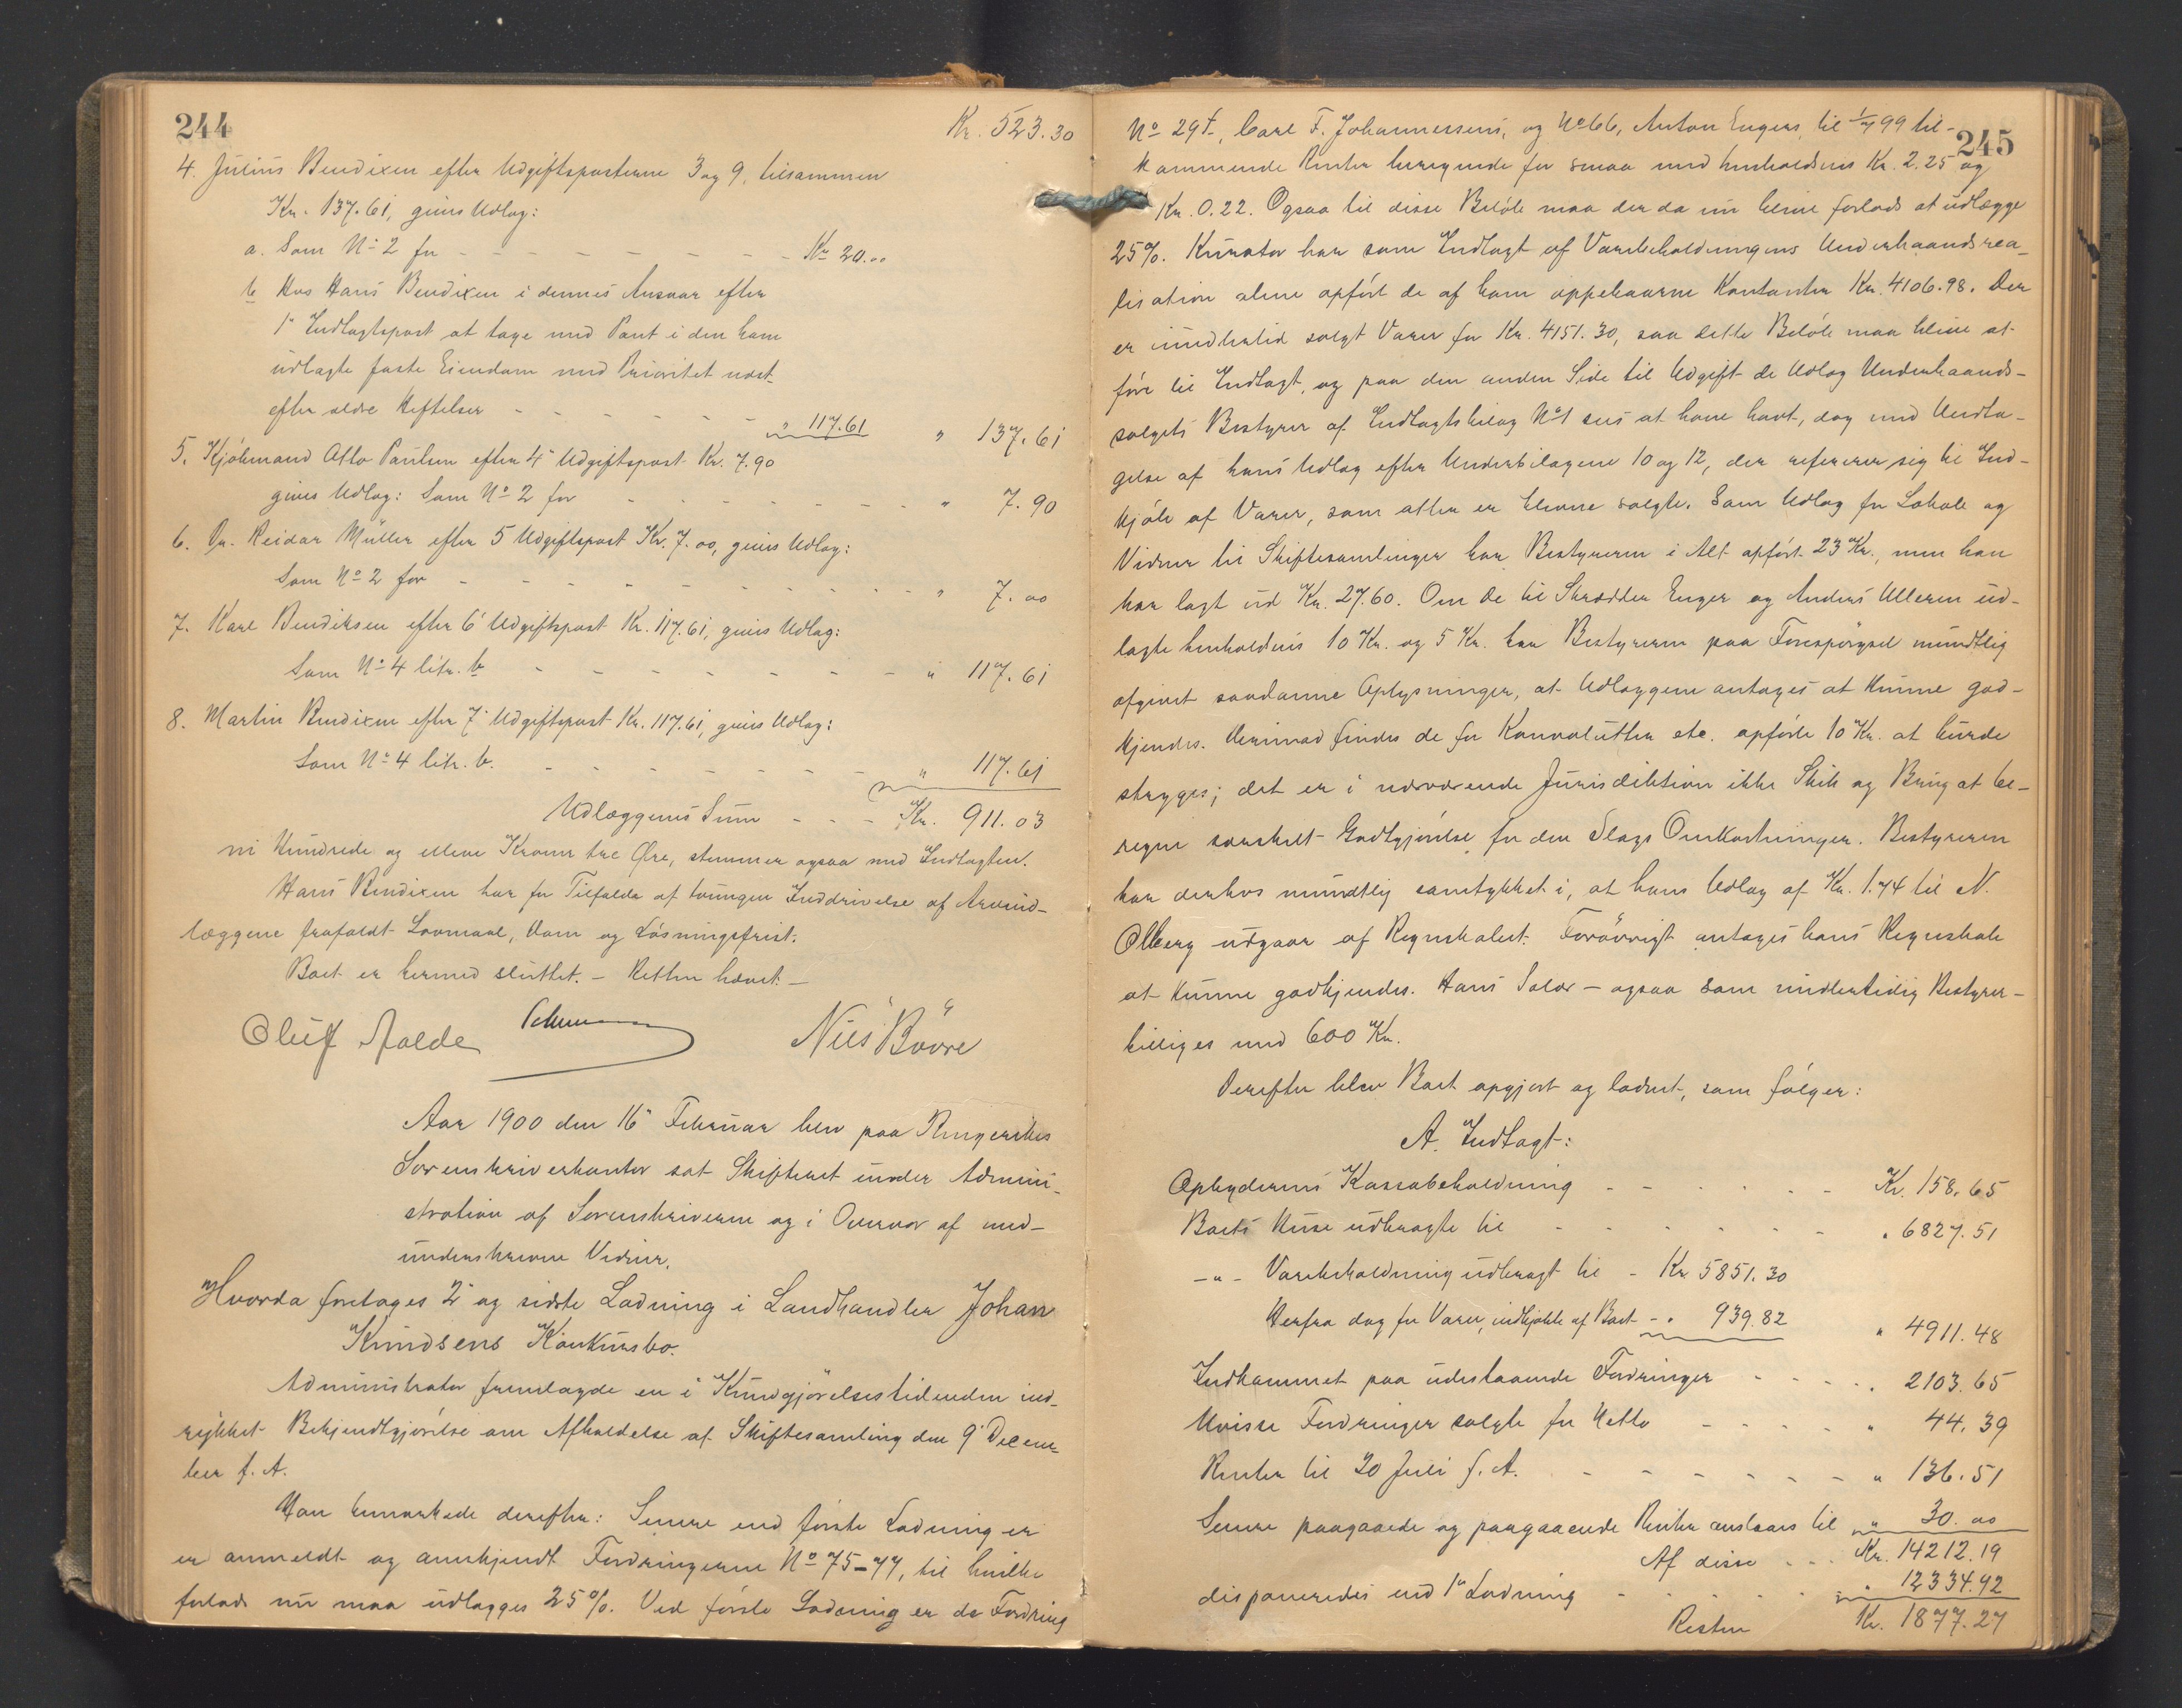 244
Kr. 523.30
4. Julius Bendixen efter Udgiftsposterne 3 og 9, tilsammen
Kr. 137.61, gives Udlæg:
a. Som No 2 for - - - - - - - Kr 20.00
b Hos Hans Bendixen i dennes Ansvar efter
1' Indtægtspost at tage med Pant i den ham
udlagte faste Eiendom med Prioritet næst
efter ældre Heftelser - - - - - - " 117.61 " 137.61
5. Kjøbmand Otto Paulsen efter 4' Udgiftspost Kr. 7.90
gives Udlæg: Som No 2 for - - - - - - " 7.90
6. Dr. Reidar Müller efter 5 Udgiftspost Kr. 7.00, gives Udlæg:
Som No 2 for - - - - - - - - - " 7.00
7. Karl Bendiksen efter 6' Udgiftspost Kr. 117.61, gives Udlæg:
Som No 4 litr. b - - - - - - - - " 117.61
8. Martin Bendixen efter 7' Udgiftspost Kr. 117.61, gives Udlæg:
Som No 4 litr. b. - - - - - - - " 117.61
Udlæggenes Sum - - - Kr. 911.03
ni Hundrede og elleve Kroner tre Øre, stemmer ogsaa med Indtægten.
Hans Bendixen har for Tilfælde af tvungen Inddrivelse af Arveud-
læggene frafaldt Lovmaal, Dom og Løsningsfrist.
Boet er hermed sluttet. - Retten hævet. -
Oluf Aalde Nils Bøvre
Aar 1900 den 16' Februar blev paa Ringerikes
Sorenskriverkontor sat Skifteret under Admini-
stration af Sorenskriveren og i Overvær af med-
underskrevne Vidner.
Hvorda foretages 2' og sidste Lodning i Landhandler Johan
Knudsens Konkursbo.
Administrator fremlagde en i Kundgjørelsestidenden ind-
rykket Bekjendtgjørelse om Afholdelse af Skiftesamling den 9' Decem-
ber f. A.
Man bemærkede derefter: Senere end første Lodning er
er anmeldt og anerkjendt Fordringerne No 75-77, til hvilke
forlods nu maa udlægges 25 %. Ved første Lodning er de Fordring
245
No 29 f., Carl F. Johannessens, og No 66, Anton Engers, til 1/7 99 til-
kommende Renter beregnede for smaa med henholdsvis Kr. 2.25 og
Kr. 0.22. Ogsaa til disse Beløb maa der da nu blive forlods at udlægge
25 %. Kurator har som Indtægt af Varebeholdningens Underhaandsrea-
lisation alene opført de af ham oppebaarne Kontanter Kr. 4106.98. Der
er imidlertid solgt Varer for Kr. 4151.30, saa dette Beløb maa blive at
føre til Indtægt, og paa den anden Side til Udgift de Udlæg Underhaands-
salgets Bestyrer af Indtægtsbilag No 1 sees at have havt, dog med Undta-
gelse af hans Udlæg efter Underbilagene 10 og 12, der refererer sig til Ind-
kjøb af Varer, som atter er blevne solgte. Som Udlæg for Lokale og
Vidner til Skiftesamlinger har Bestyreren i Alt opført 23 Kr., men han
har lagt ud Kr. 27.60. Om de til Skrædder Enger og Anders Ulleren ud-
lagte henholdsvis 10 Kr. og 5 Kr. har Bestyreren paa Forespørgsel mundtlig
afgivet saadanne Oplysninger, at Udlæggene antages at kunne god-
kjendes. Derimod findes de for Konvolutter etc. opførte 10 Kr. at burde
stryges; det er i nærværende Jurisdiktion ikke Skik og Brug at be-
regne særskilt Godtgjørelse for den Slags Omkostninger. Bestyreren
har derhos mundtlig samtykket i, at hans Udlæg af Kr. 1.74 til N.
Olberg udgaar af Regnskabet. Forøvrigt antages hans Regnskab
at kunne godkjendes. Hans Salær - ogsaa som midlertidig Bestyrer -
billiges med 600 Kr.
Derefter blev Boet opgjort og loddet, som følger:
A. Indtægt:
Opbyderens Kassabeholdning - - - - - - Kr. 158.65
Boets Huse udbragte til - - - - - - " 6827.51
- " - Varebeholdning udbragt til - Kr. 5851.30
Herfra dog for Varer, indkjøbte af Boet - " 939.82 " 4911.48
Indkommet paa udestaaende Fordringer - - - - " 2103.65
Uvisse Fordringer solgte for Netto - - - - " 44.39
Renter til 20 Juli f. A. - - - - - - - " 136.51
Senere paagaaede og paagaaende Renter anslaaes til " 30.00
Kr. 14212.19
Af disse - - -
disponeredes ved 1' Lodning - - - - - " 12334.92
Resten Kr. 1877.27